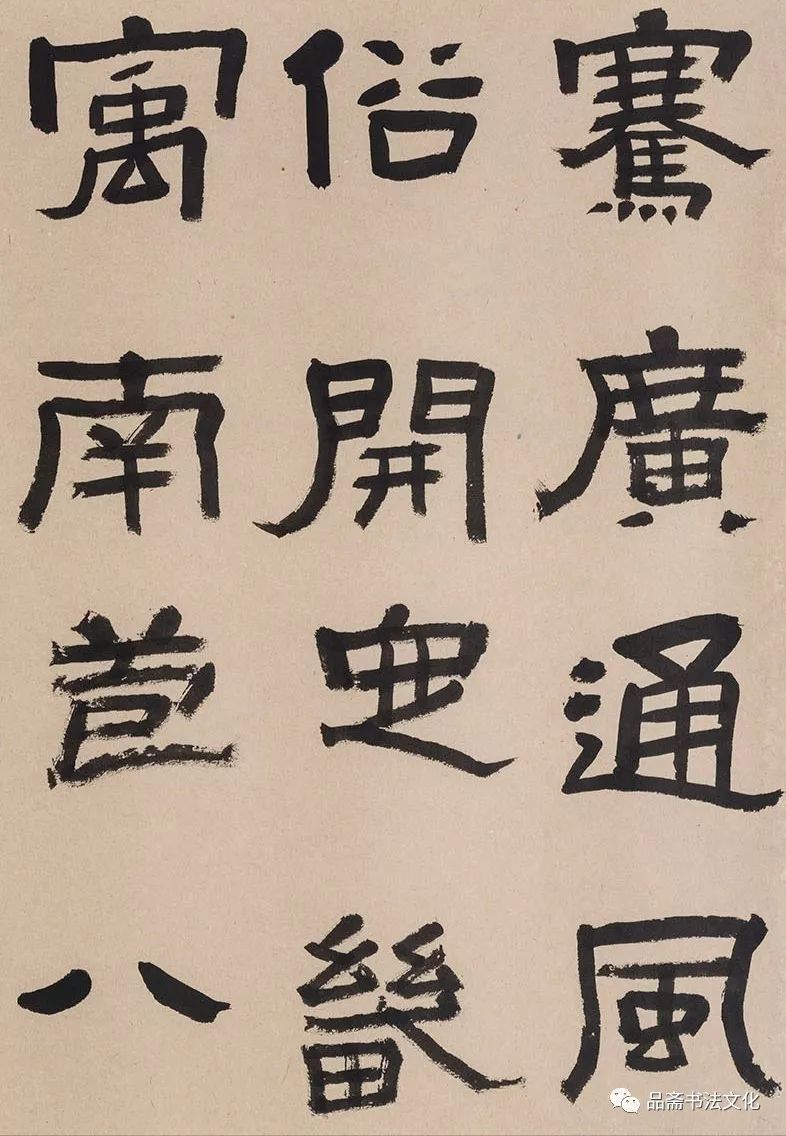 騫廣通風
俗開定畿
寓南苞八
品斋书法文化